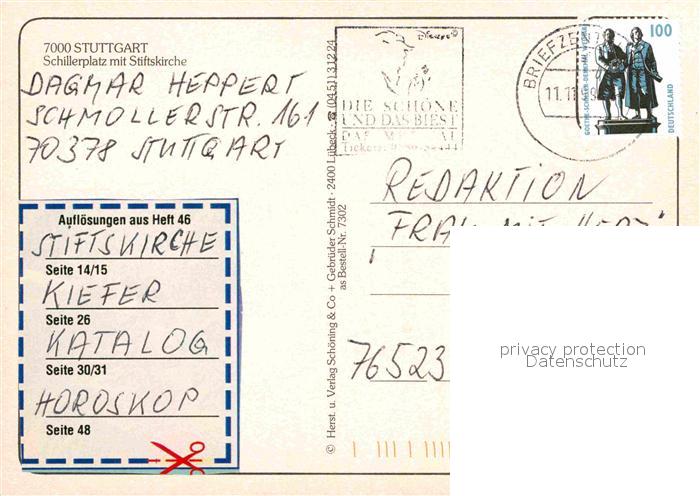 7000 STUTTGART
Schillerplatz mit Stiftskirche
DAGMAR HEPPERT
SCHMOLLERSTR. 161
70378 STUTTGART
Auflösungen aus Heft 46
STIFTSKIRCHE
Seite 14/15
KIEFER
Seite 26
KATALOG
Seite 30/31
HOROSKOP
Seite 48
© Herst. u. Verlag Schöning & Co + Gebrüder Schmidt · 2400 Lübeck · ☎ (04 51) 3 12 24
as Bestell-Nr. 7302
Disney©
DIE SCHÖNE
UND DAS BIEST
BRIEFZEN
11.11
100
DEUTSCHLAND
REDAKTION
FRAU MIT HERZ
76523
privacy protection
Datenschutz